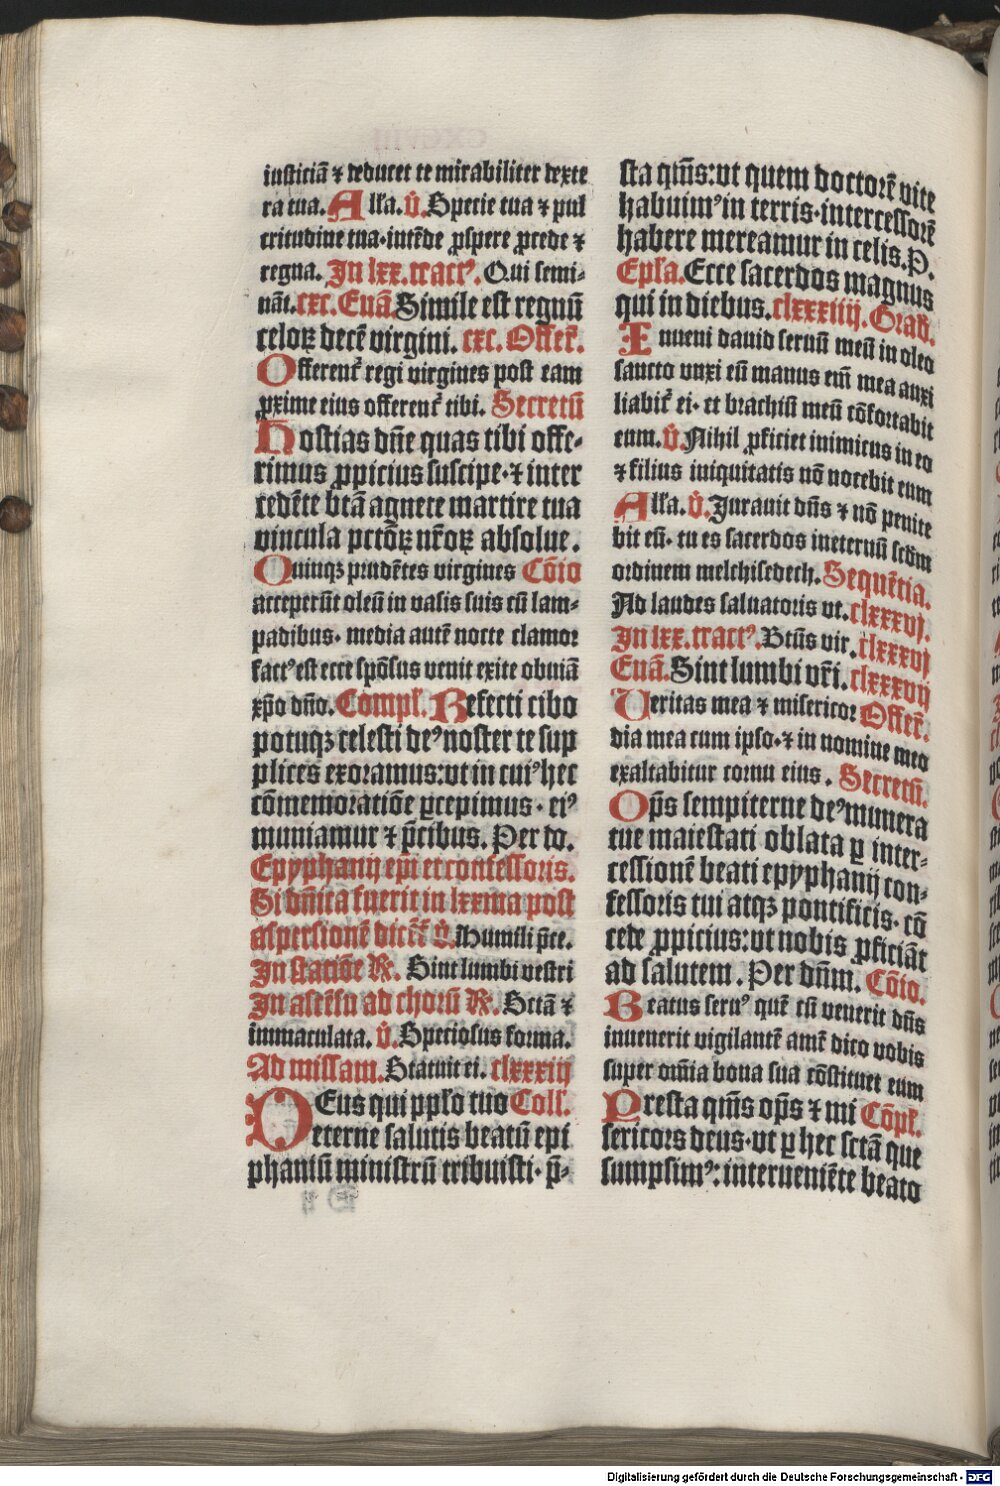 iusticiā ⁊ deducet te mirabiliter dexte
ra tua. Alła. V̄. Specie tua ⁊ pul
critudine tua·intēde ꝓspere ꝓcede ⁊
regna. In lxx. tractꝰ. Qui semi-
nāt. cxc. Euā. Simile est regnū
celoꝝ decē virgini. cxc. Offert̄.
Offerent̄ regi virgines post eam
ꝓxime eius offerent̄ tibi. Secretū
Hostias dn̄e quas tibi offe-
rimus ꝓpicius suscipe·⁊ inter
cedēte btā agnete martire tua
vincula pctōꝝ nr̄oꝝ absolue.
Quinqꝫ prudētes virgines Cōio
acceperūt oleū in vasis suis cū lam-
padibus· media autē nocte clamor
factꝰ est ecce spōsus venit exite obuiā
xp̄o dn̄o. Compł. Refecti cibo
potuqꝫ celesti deꝰ noster te sup
plices exoramus: vt in cuiꝰ hec
cōmemoratiōe ꝑcepimus· eiꝰ
muniamur ⁊ p̄cibus. Per do.
Epyphanij ep̄i et confessoris.
Si dn̄ica fuerit in lxxma post
aspersionē dicēt̄ V̄. Humili p̄ce.
In statiōe R̄. Sint lumbi vestri
In ascēsu ad chorū R̄. Sctā ⁊
immaculata. V̄. Speciosus forma.
Ad missam. Statuit ei. clxxxiij
DEus qui pplo tuo Coll.
eterne salutis beatū epi
phaniū ministrū tribuisti· p̄-
sta qm̄s: vt quem doctorē vite
habuimꝰ in terris·intercessorē
habere mereamur in celis. P.
Epl̄a. Ecce sacerdos magnus
qui in diebus. clxxxiiij. Grad̄.
Inueni dauid seruū meū in oleo
sancto vnxi eū manus em̄ mea auxi
liabit̄ ei· et brachiū meū cōfortabit
eum. V̄. Nihil ꝓficiet inimicus in eo
⁊ filius iniquitatis nō nocebit eum
Alła. V̄. Iurauit dn̄s ⁊ nō penite
bit eū· tu es sacerdos ineternū scdm̄
ordinem melchisedech. Sequētia.
Ad laudes saluatoris vt. clxxxvj.
In lxx. tractꝰ. Btūs vir. clxxxvj
Euā. Sint lumbi vr̄i. clxxxvij
Veritas mea ⁊ misericor Offert̄.
dia mea cum ipso·⁊ in nomine meo
exaltabitur cornu eius. Secretū.
Op̄s sempiterne deꝰ munera
tue maiestati oblata ꝑ inter-
cessionē beati epyphanij con-
fessoris tui atqꝫ pontificis· cō
cede ꝓpicius: vt nobis ꝓficiāt
ad salutem. Per dn̄m. Cōio.
Beatus seruꝰ quē cū venerit dn̄s
inuenerit vigilantē amē dico vobis
super om̄ia bona sua cōstituet eum
Presta qm̄s op̄s ⁊ mi Cōpł.
sericors deus·vt ꝑ hec sctā que
sumpsimꝰ: interueniēte beato
Digitalisierung gefördert durch die Deutsche Forschungsgemeinschaft - DFG